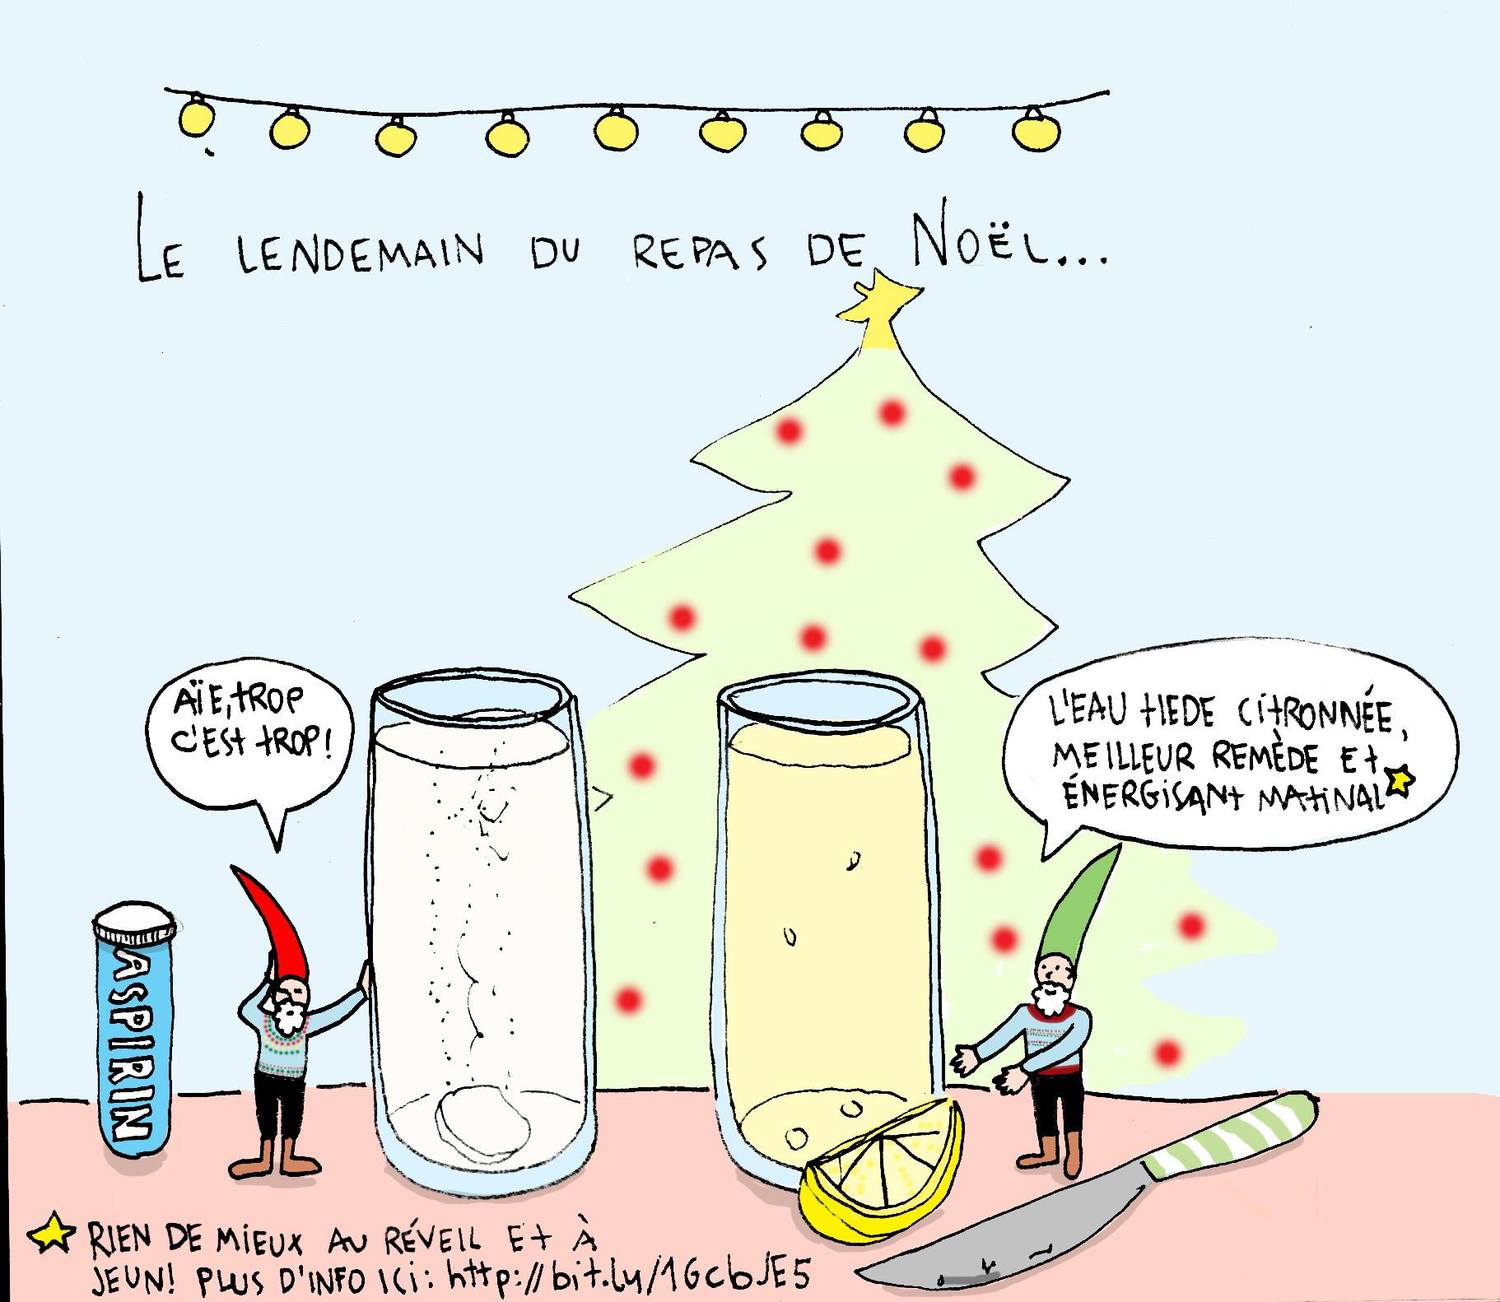 LE LENDEMAIN DU REPAS DE NOËL...
AÏE, TROP
C'EST TROP!
L'EAU TIEDE CITRONNÉE,
MEILLEUR REMÈDE ET
ÉNERGISANT MATINAL
ASPIRIN
RIEN DE MIEUX AU RÉVEIL ET À
JEUN! PLUS D'INFO ICI: http://bit.ly/1GcbJE5